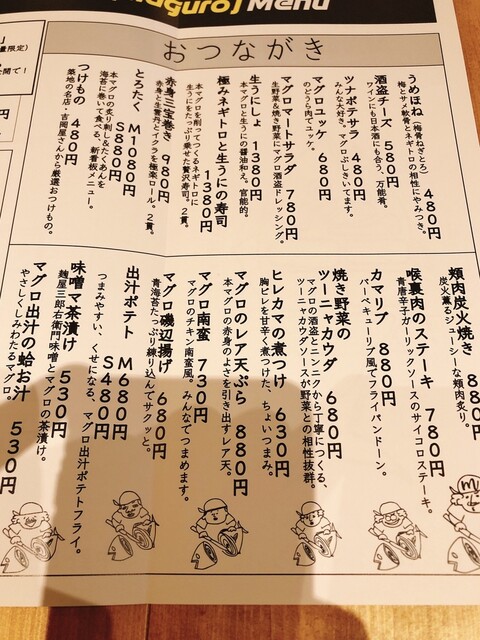 Maguro」Menu
おつながき
うめほね（梅骨ねぎとろ） 480円
梅とサメ軟骨とネギトロの相性にやみつき。
酒盗チーズ 580円
ワインにも日本酒にも合う、万能肴。
ツナポテサラ 480円
みんな大好き。マグロぶしきいてます。
マグロユッケ 680円
のどうら肉でユッケ。
マグロマートサラダ 780円
生野菜&焼き野菜にマグロ酒盗ドレッシング。
生うにしょ 1380円
本マグロと生うにの醤油和え。官能的。
極みネギトロと生うにの寿司 1380円
本マグロを削ってつくるネギトロに
生うにをたっぷり乗せた贅沢寿司。2貫。
赤身三宝巻き 980円
赤身と生雲丹とイクラを極楽ロール。2貫。
とろたく M1080円
S880円
本マグロの炙り刺し&たくあんを
海苔に巻いて食べる、新看板メニュー。
つけもの 480円
築地の名店・吉岡屋さんから厳選おつけもの。
頬肉炭火焼き 880
炭火薫るジューシーな頬肉炙り。
喉裏肉のステーキ 780円
青唐辛子ガーリックソースのサイコロステーキ。
カマリブ 880円
バーベキューリブ風でフライパンドーン。
焼き野菜の
ツーニャカウダ 680円
マグロの酒盗とニンニクから丁寧につくる、
ツーニャカウダソースが野菜との相性抜群。
ヒレカマの煮つけ 630円
胸ビレを甘辛く煮つけた、ちょいつまみ。
マグロのレア天ぷら 880円
本マグロの赤身のよさを引き出すレア天。
マグロ南蛮 730円
マグロのチキン南蛮風。みんなでつまめます。
マグロ磯辺揚げ 680円
青海苔たっぷり練り込んでサクッと。
出汁ポテト M680円
S480円
つまみやすい、くせになる、マグロ出汁ポテトフライ。
味噌マ茶漬け 530円
麹屋三郎右衛門味噌とマグロの茶漬け。
マグロ出汁の蛤お汁 530円
やさしくしみわたるマグロ。